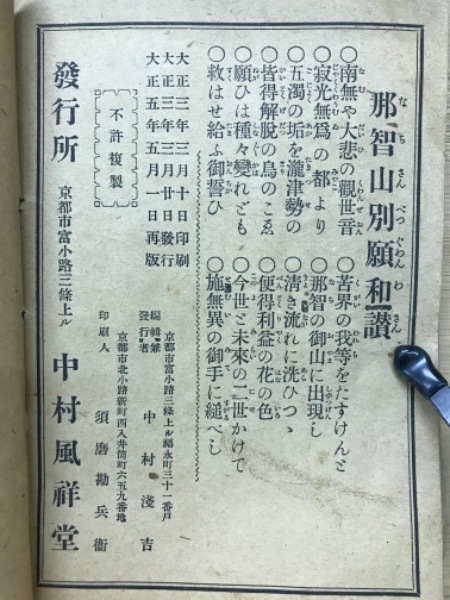 那智山別願和讃
○南無や大悲の觀世音
○苦界の我等をたすけんと
○寂光無爲の都より
○那智の御山に出現し
○五濁の垢を瀧津勢の
○淸き流れに洗ひつゝ
○皆得解脱の鳥のこゑ
○便得利益の花の色
○願ひは種々變れども
○今世と未來の二世かけて
○救はせ給ふ御誓ひ
○施無異の御手に縋べし
大正三年三月十日印刷
大正三年三月廿日發行
大正五年五月一日再版
不許複製
京都市富小路三條上ル福永町三十一番戸
編輯兼發行者 中村淺吉
京都市北小路新町西入井筒町六五九番地
印刷人 須磨勘兵衞
發行所 京都市富小路三條上ル 中村風祥堂